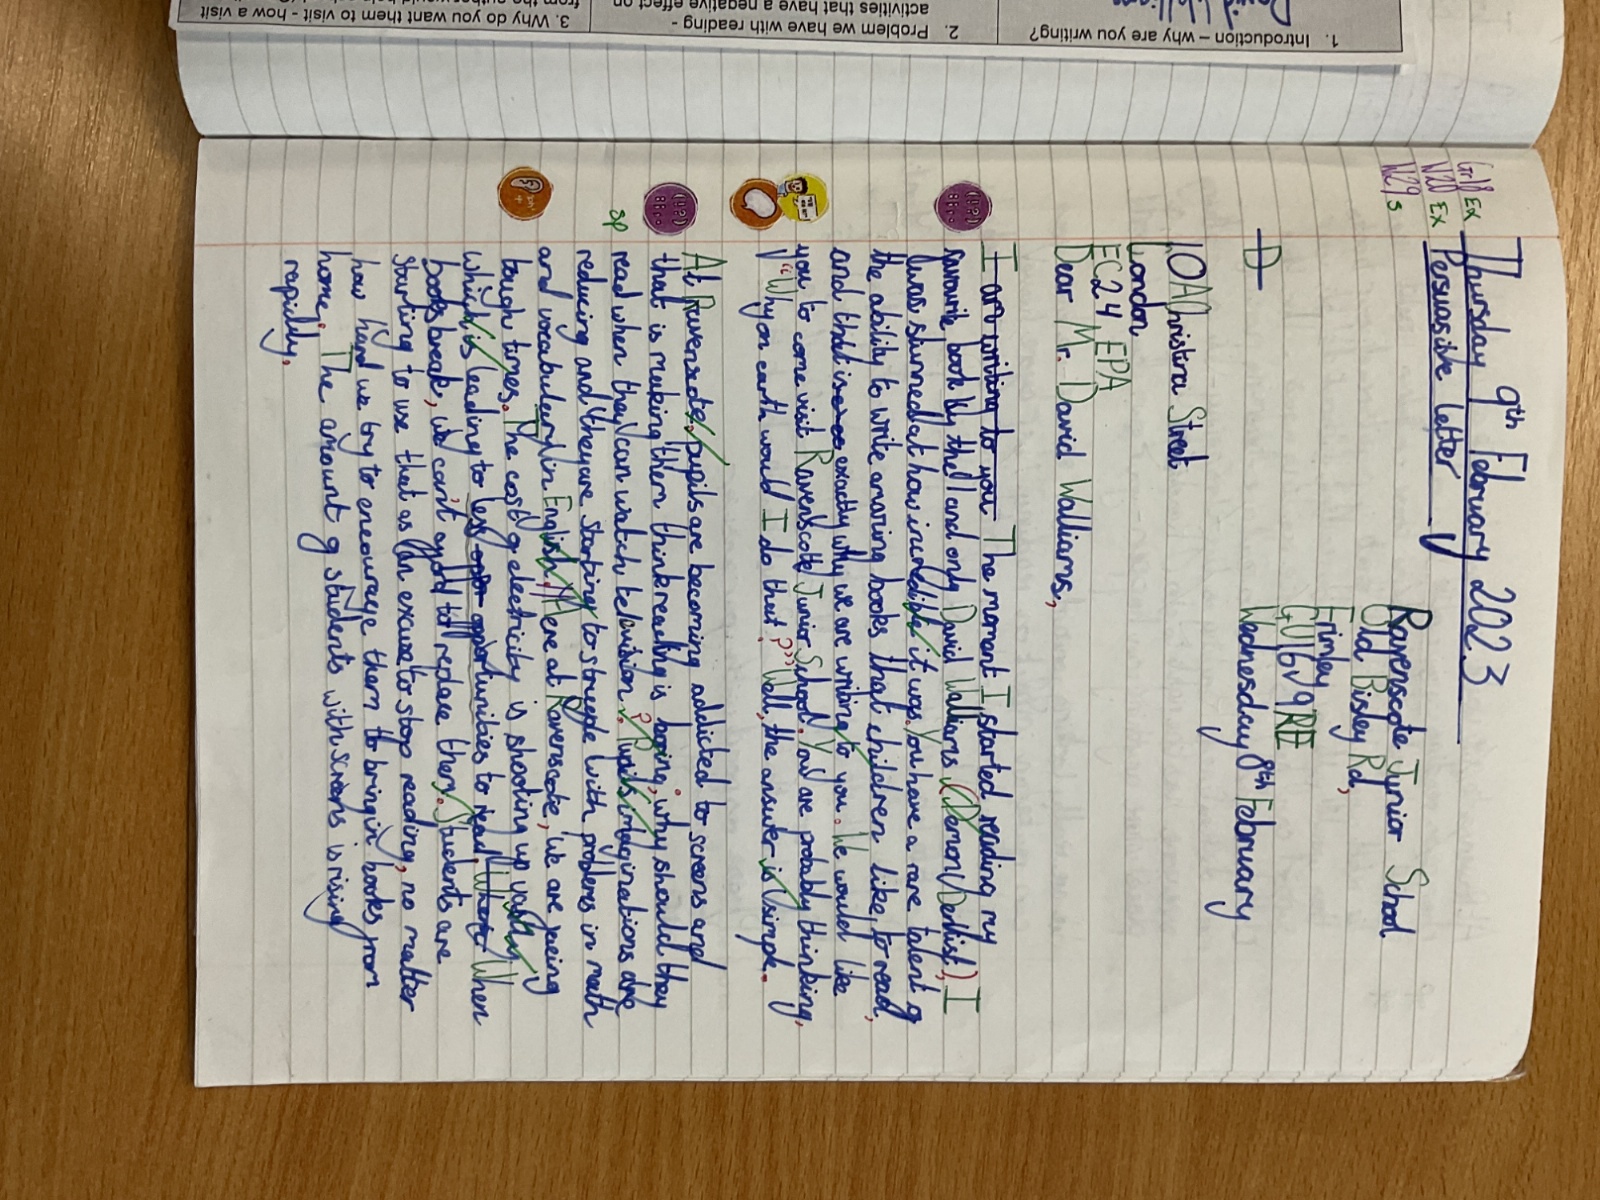 1. Introduction – why are you writing?
2. Problem we have with reading -
activities that have a negative effect on
3. Why do you want them to visit - how a visit
Gr18 Ex
W20 Ex
W29 s
Thursday 9th February 2023
Persuasive letter
Ravenscote Junior School
Old Bisley Rd,
Frimley
GU16 9RE
Wednesday 8th February
D
10A Christina Street
London,
EC24 EPA
Dear Mr. David Walliams,
I am writing to you The moment I started reading my
favourite book by the 1 and only David Walliams (Demon Dentist,) I
was stunned at how incredible it was. You have a rare talent of
the ability to write amazing books that children like to read,
and that is exactly why we are writing to you. We would like
you to come visit Ravenscote Junior School. You are probably thinking,
"Why on earth would I do that?" Well, the answer is simple.
At Ravenscote, pupils are becoming addicted to screens and
that is making them think reading is boring, why should they
sp
read when they can watch telivision? Pupils imaginations are
reducing and they are starting to struggle with problems in math
and vocabulary in English. // Here at Ravenscote, we are facing
tough times. The cost of electricity is shooting up vastly
which is leading to less oppor opportunities to read. Where When
books break, we can't afford to replace them. Students are
starting to use that as an excuse to stop reading, no matter
how hard we try to encourage them to bring in books from
home. The amount of students with screens is rising
rapidly.